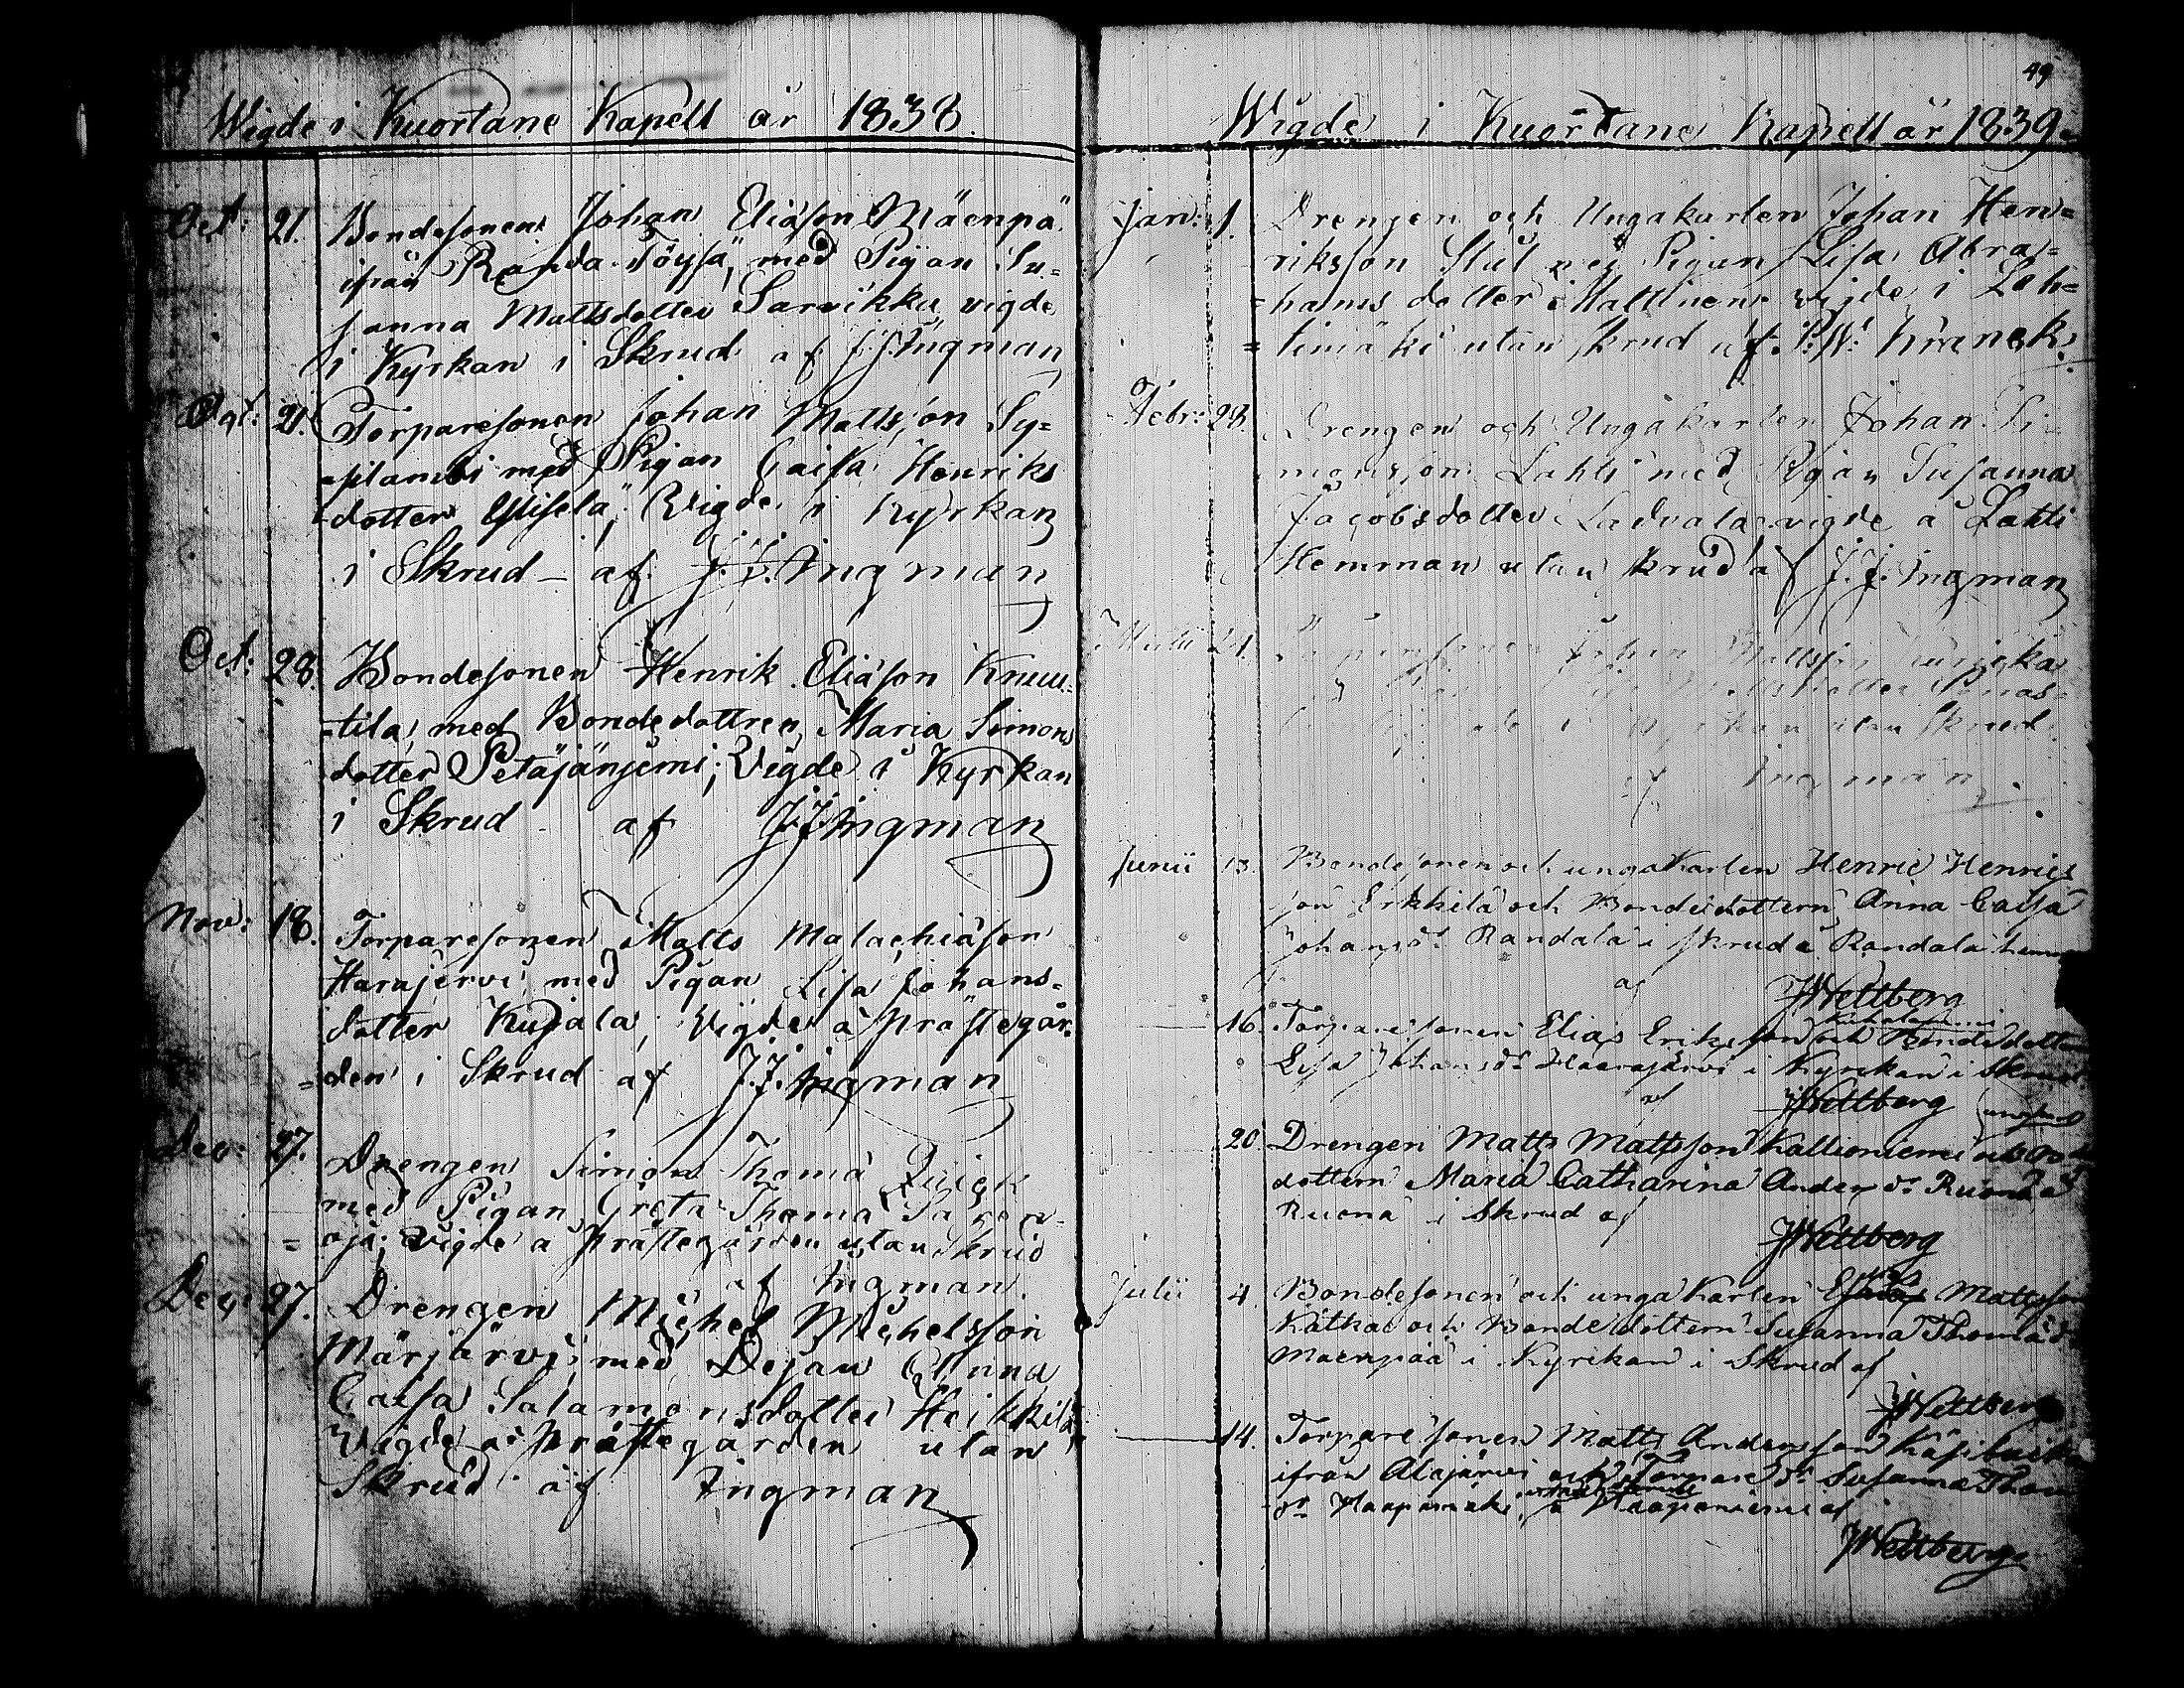 Wigde i Kuortane Kapell år 1838.
Oct: 21. Bondesonen Johan Eliason Mäenpä
ifrån Randa Töysä, med Pigan Su=
sanna Mattsdotter Sarvikku vigde
i Kyrkan i Skrud af J.J. Ingman
Oct: 21. Torparesonen Johan Mattsson Sy=
med Pigan Caisa Henriks
dotter Vigde i Kyrkan
i Skrud – af J.J. Ingman
Oct: 28. Bondesonen Henrik Eliason Knuu=
=tila, med Bondedottren Maria Simons
dotter Petäjänjemi; Vigde i Kyrkan
i Skrud – af J.J. Ingman
Nov: 18. Torparesonen Matts Malachiason
Harajervi, med Pigan Lisa Johans=
dotter Kujala, Vigde å prästegår=
=den i Skrud af J.J. Ingman
Dec: 27. Drengen Simon Thoma Quick
med Pigan Greta Thoma
oja; Vigde å prästegården utan Skrud
af Ingman.
Dec: 27. Drengen Michel Michelsson
Märjärvi; med Dejan Anna
Caisa Salamonsdotter Heikkilä
Vigde å prästegården utan
Skrud af Ingman
49
Wigde i Kuortane Kapell år 1839.
Jan: 1. Drengen och Ungakarlen Johan Hen=
riksson Slut Pigan Lisa Abra=
=hams dotter Mattinen vigde i Lah=
=timäki utan skrud af P.W. Kranck.
Febr: 28. Drengen och Ungakarlen Johan Si=
monsson Lahti med Pigan Susanna
Jacobsdotter Ladvala vigde å Lahti
Hemman utan skrud af J.J. Ingman
21. Johan Mattsson
dotter
Kyrkan utan Skrud
af Ingman
Junii 13. Bondesonen och ungakarlen Henric Henrics
son Erkkilä och Bondedottern Anna Caisa
Johans dr Randala i skrud å Randala hemn
af JWettberg
16. Torparesonen Elias Eriksson och Bondedotter
Lisa Johans dr Haarajärvi i Kyrckan i Skrud
af JWettberg
20. Drengen Matts Mattsson Kallioniemi och
dottern Maria Catharina Anders dr Ruona å
Ruona i Skrud af
JWettberg
Julii 4. Bondesonen och unga Karlen Mattsson
Kätkä och Bonde dottern Susanna Thomæ dr
Mäenpää i Kyrckan i Skrud af
JWettberg
14. Torparesonen Matts Andersson
ifrån Alajärvi och Torpare dr Susanna Thom
dr Haapamäki, å af
JWettberg